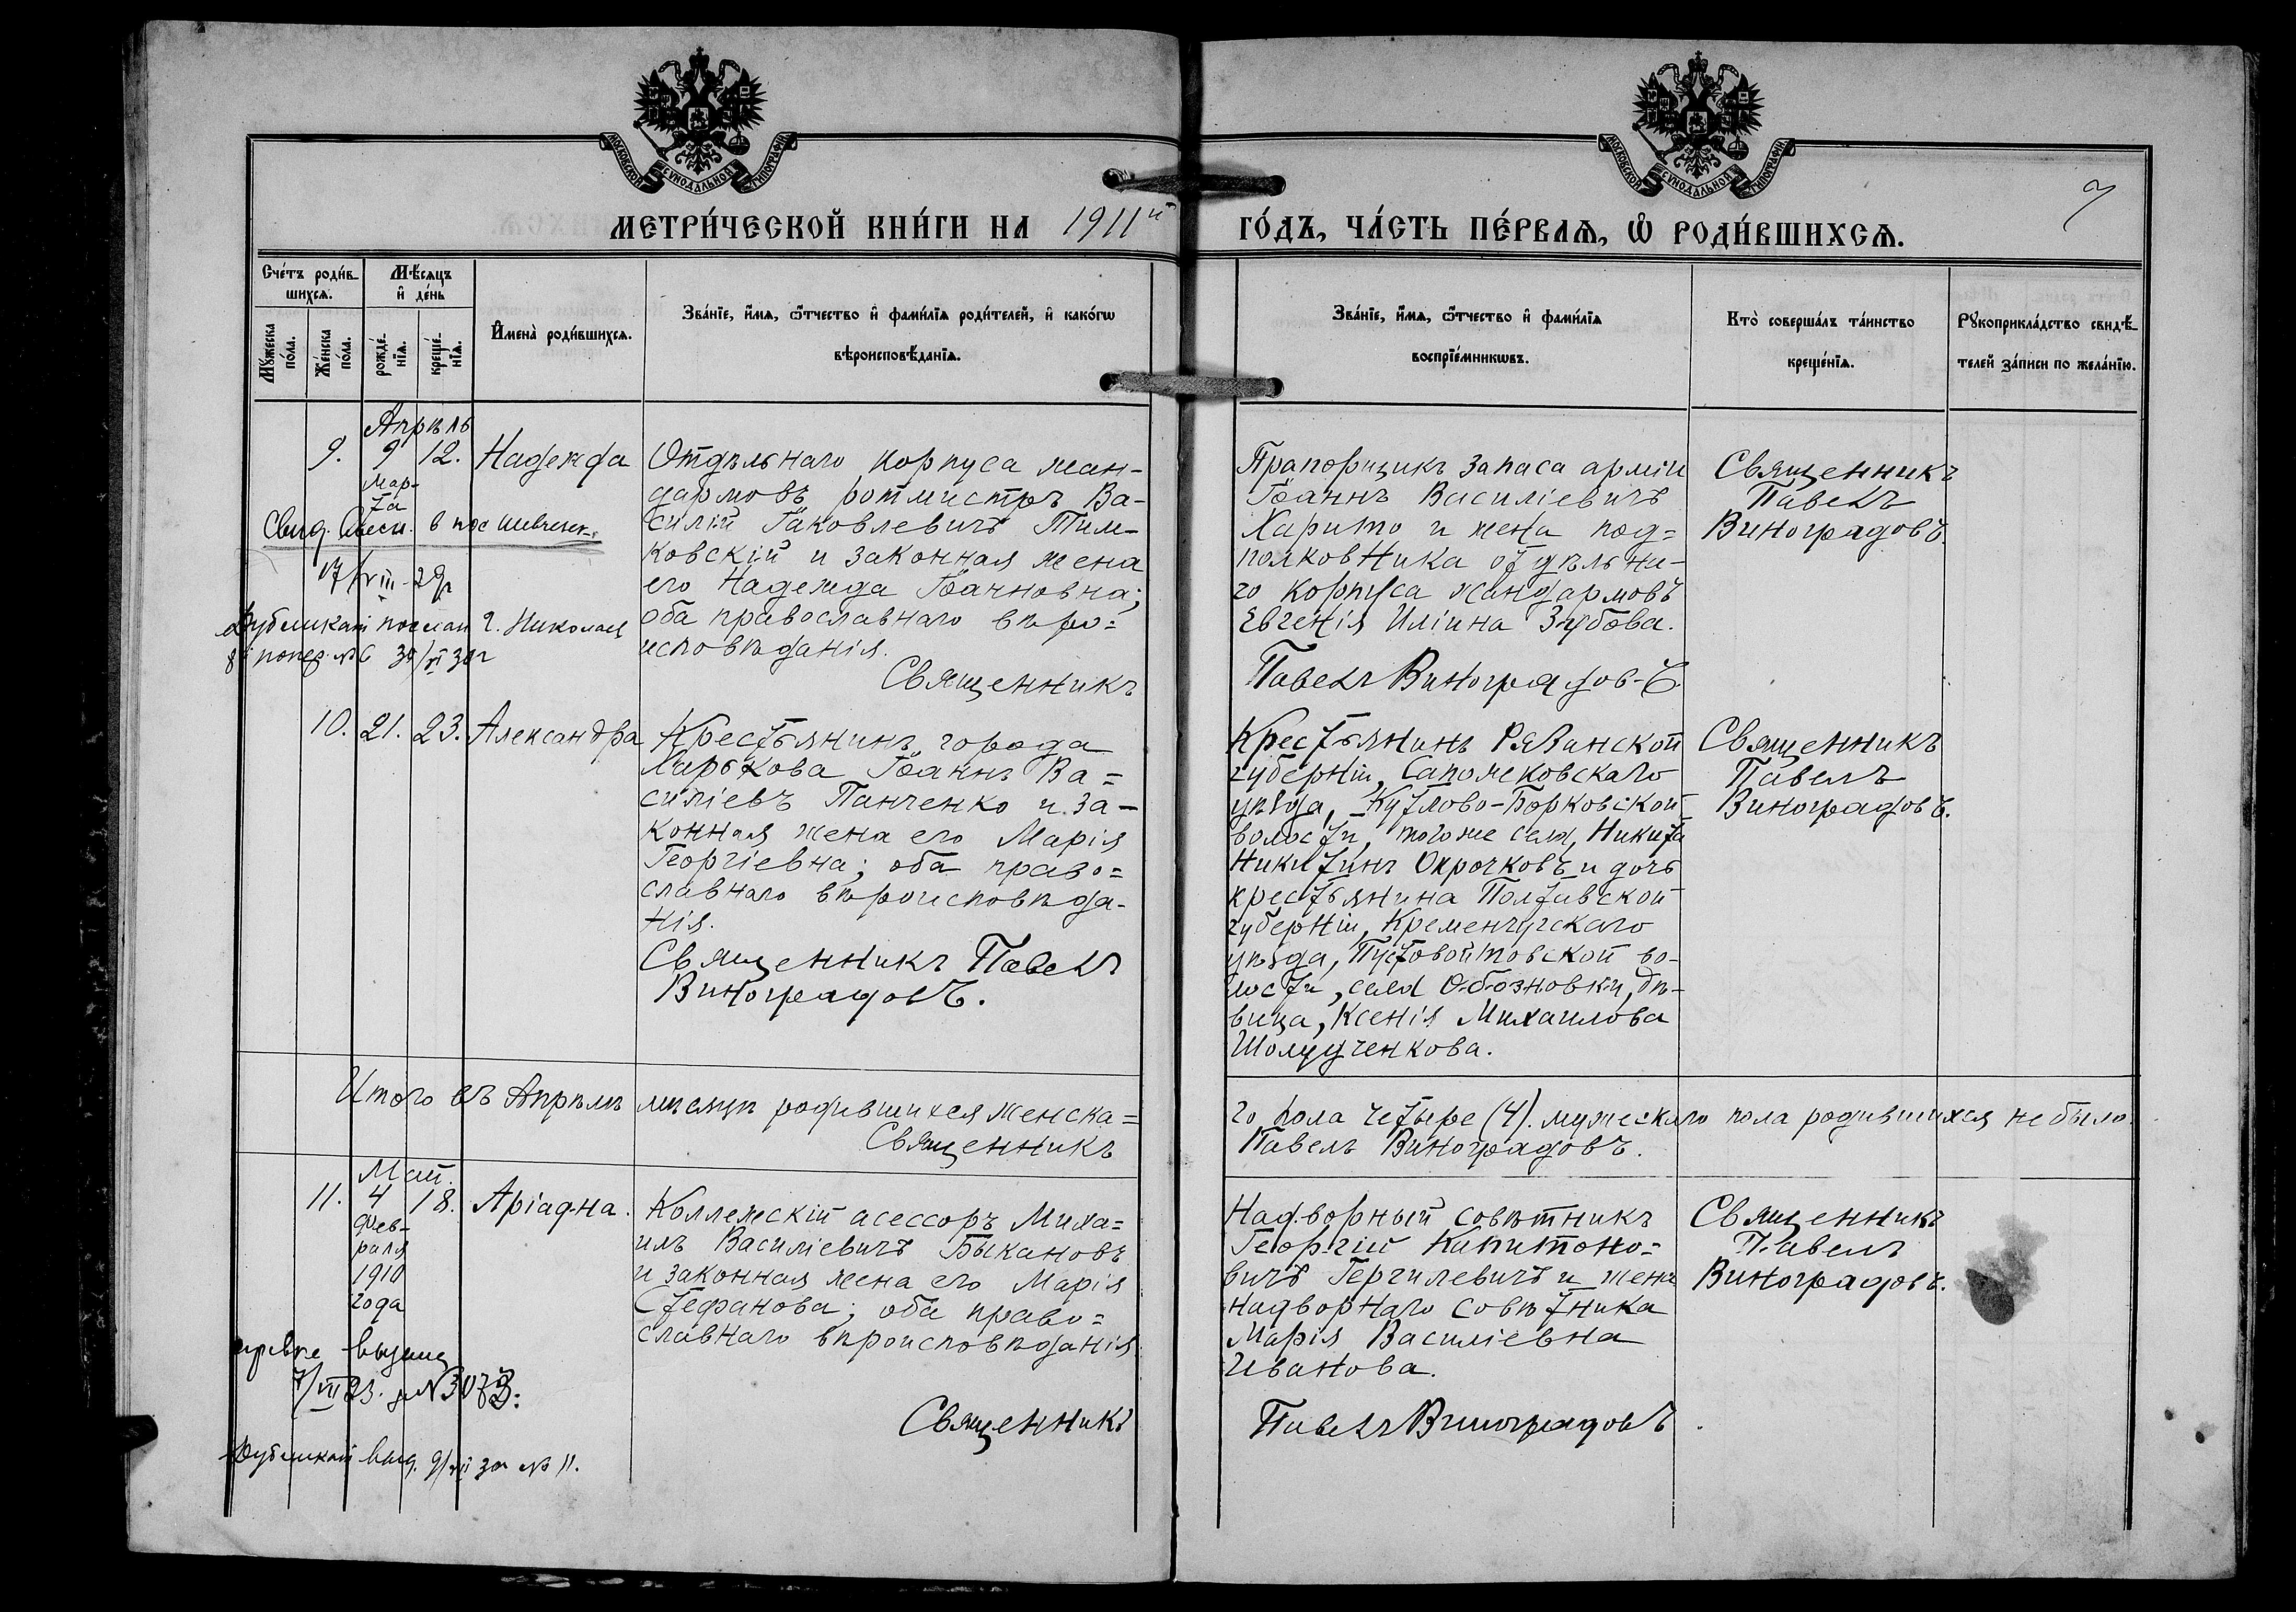 МОСКОВСКОЙ СУНОДАЛЬНОЙ ТИПОГРАФІИ
МОСКОВСКОЙ СУНОДАЛЬНОЙ ТИПОГРАФІИ
МЕТРИ́ЧЕСКОЙ КНИ́ГИ НА 1911й ГО́ДЪ, ЧА́СТЬ ПЕ́РВАѦ, Ѡ РОДИ́ВШИХСѦ.
7
Сче́тъ роди́в-
шихсѧ.
Мꙋжеска
по́ла.
Же́нска
по́ла.
Мѣ́сѧцъ
и҆ де́нь
рожде́-
нїѧ.
креще́-
нїѧ.
И҆мена̀ роди́вшихсѧ.
Зва́нїе, и҆́мѧ, ѻ҆́тчество и҆ фами́лїѧ роди́телей, и҆ како́гѡ
вѣроисповѣ́данїѧ.
Зва́нїе, и҆́мѧ, ѻ҆́тчество и҆ фами́лїѧ
воспрїе́мникѡвъ.
Кто̀ соверша́лъ та́инство
креще́нїѧ.
Рꙋкоприкла́дство свидѣ́-
телей за́писи по жела́нїю.
Апрѣль
9. 9 12. Надежда
Мар-
та
Свид. в пос
17/VIII-29г
Дубликат послан г. Николаев
№6 30/XI 30г
Отдѣльнаго корпуса жан-
дармовъ ротмистръ Ва-
силій Іаковлевичъ Тим-
ковскій и законная жена
его Надежда Іоанновна;
оба православнаго вѣро=
исповѣданія.
Священникъ
Прапорщикъ запаса арміи
Іоаннъ Василіевичъ
Харито и жена под=
полковника отдѣльна-
го корпуса жандармовъ
Евгенія Иліина Зубова.
Павелъ Виноградовъ.
Священникъ
Павелъ
Виноградовъ.
10. 21. 23. Александра
Крестьянинъ города
Харькова Іоаннъ Ва=
силіевъ Панченко и за-
конная жена его Марія
Георгіевна; оба право=
славнаго вѣроисповѣда-
нія.
Священникъ Павелъ
Виноградовъ.
Крестьянинъ Рязанской
губерніи, Сапожковскаго
уѣзда, Путлово-Борковской
волости, того же села, Никита
Никитинъ Окрочковъ и дочь
крестьянина Полтавской
губерніи, Кременчугскаго
уѣзда, Пустовойтовской во-
лости, села Обозновки, дѣ-
вица, Ксенія Михаилова
Шолудченкова.
Священникъ
Павелъ
Виноградовъ.
Итого въ Апрѣлѣ мѣсяцѣ родившихся женска=
го пола четыре (4). мужескаго пола родившихся не было.
Священникъ
Павелъ Виноградовъ.
Май.
11. 4 18. Аріадна.
Фев-
раля
1910
года
выдана
7/VII 23. №3073.
Дубликат выд. 9/XII 30г №11.
Коллежскій асессоръ Миха=
илъ Василіевичъ Быкановъ
и законная жена его Марія
Стефанова; оба право=
славнаго вѣроисповѣданія.
Священникъ
Надворный совѣтникъ
Георгій Капитоно=
вичъ Гергилевичъ и жена
надворнаго совѣтника
Марія Василіевна
Иванова.
Павелъ Виноградовъ.
Священникъ
Павелъ
Виноградовъ.